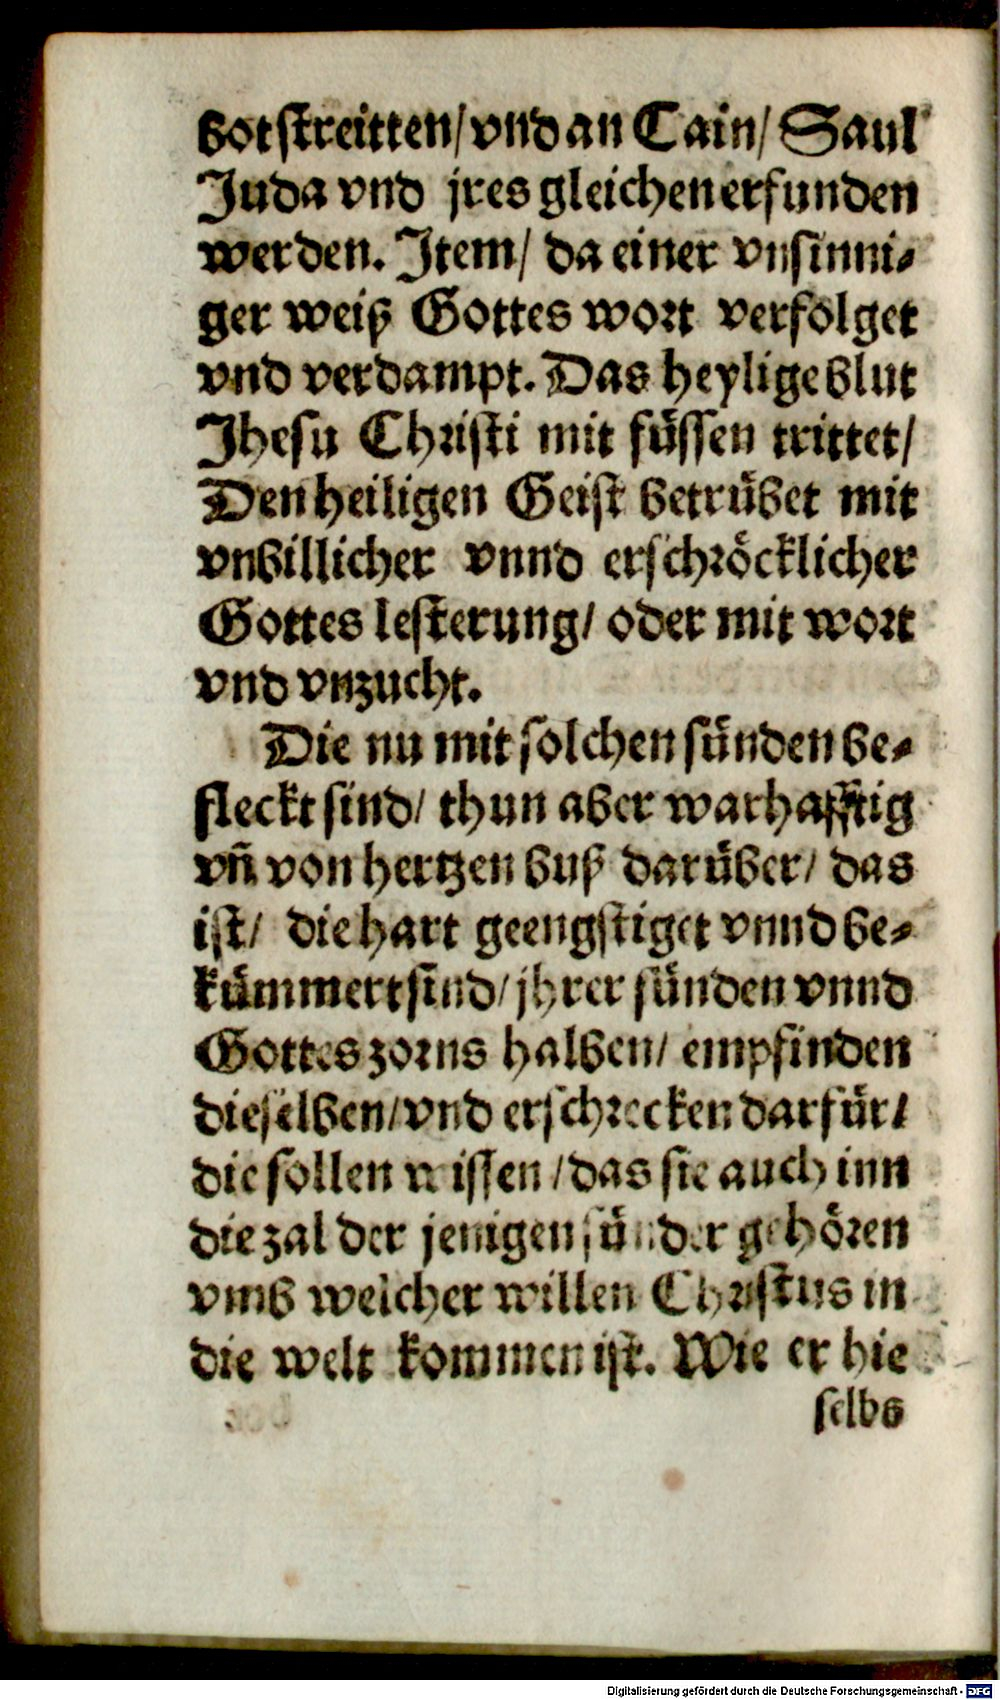 bot streitten/ vnd an Cain/ Saul
Juda vnd jres gleichen erfunden
werden. Jtem/ da einer vnsinni⸗
ger weiß Gottes wort verfolget
vnd verdampt. Das heylige blut
Jhesu Christi mit füssen trittet/
Den heiligen Geist betrübet mit
vnbillicher vnnd erschröcklicher
Gottes lesterung/ oder mit wort
vnd vnzucht.
Die nu mit solchen sünden be⸗
fleckt sind/ thun aber warhafftig
vñ von hertzen buß darüber/ das
ist/ die hart geengstiget vnnd be⸗
kümmert sind/ jhrer sünden vnnd
Gottes zorns halben/ empfinden
dieselben/ vnd erschrecken darfür/
die sollen wissen/ das sie auch inn
die zal der jenigen sünder gehören
vmb welcher willen Christus in
die welt kommen ist. Wie er hie
selbs
Digitalisierung gefördert durch die Deutsche Forschungsgemeinschaft - DFG